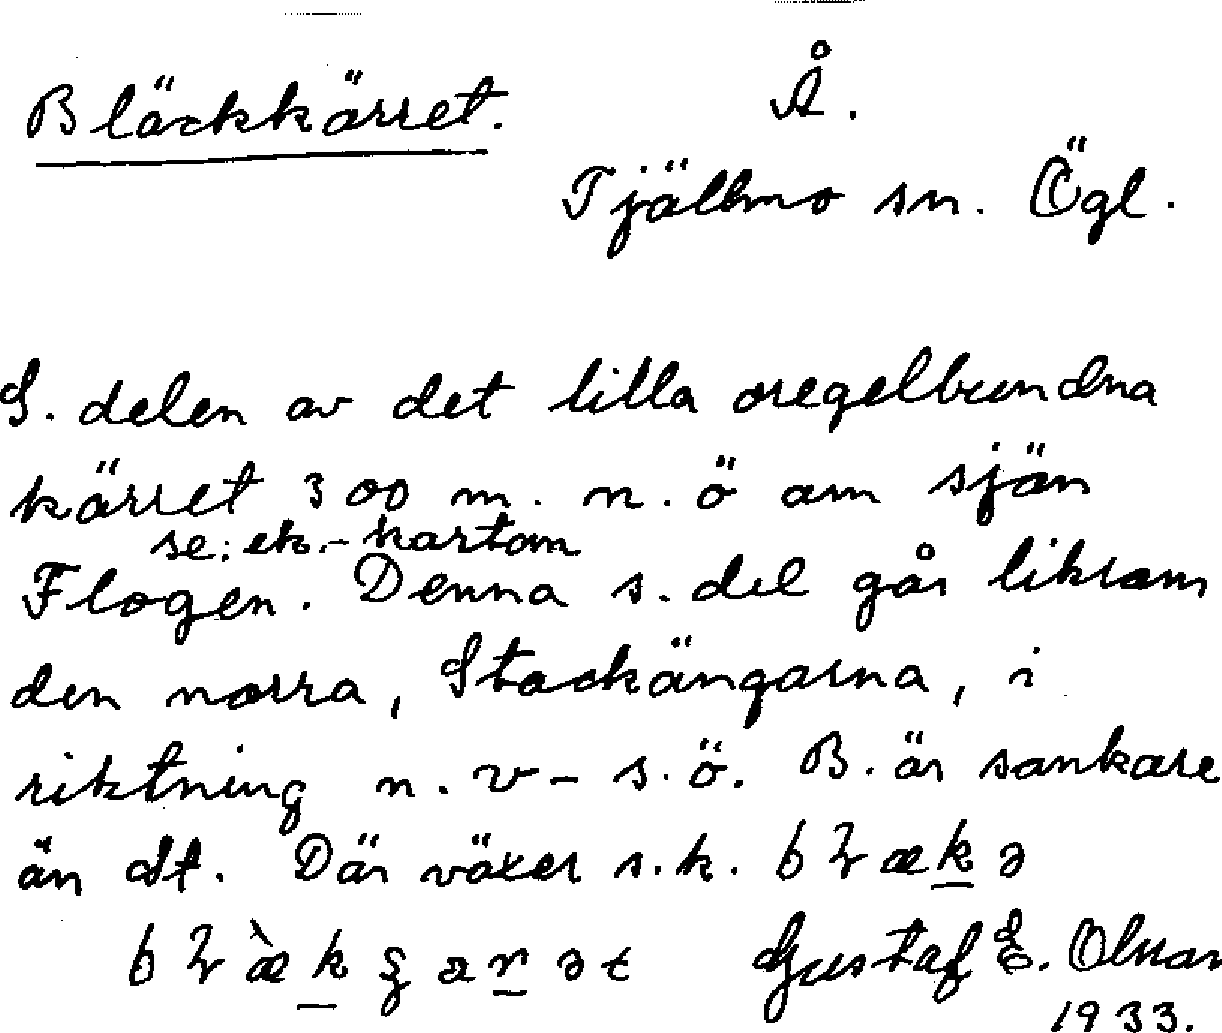 Bläckkärret.
Å.
Tjällmo sn. Ögl.
S. delen av det lilla oregelbundna
kärret 300 m. n.ö om sjön
se: ek.-kartan
Flogen. Denna s. del går liksom
den norra, Stockängarna, i
riktning n.v – s.ö. B. är sankare
än St. Där växer s.k.
Gustaf E. Olsson
1933.